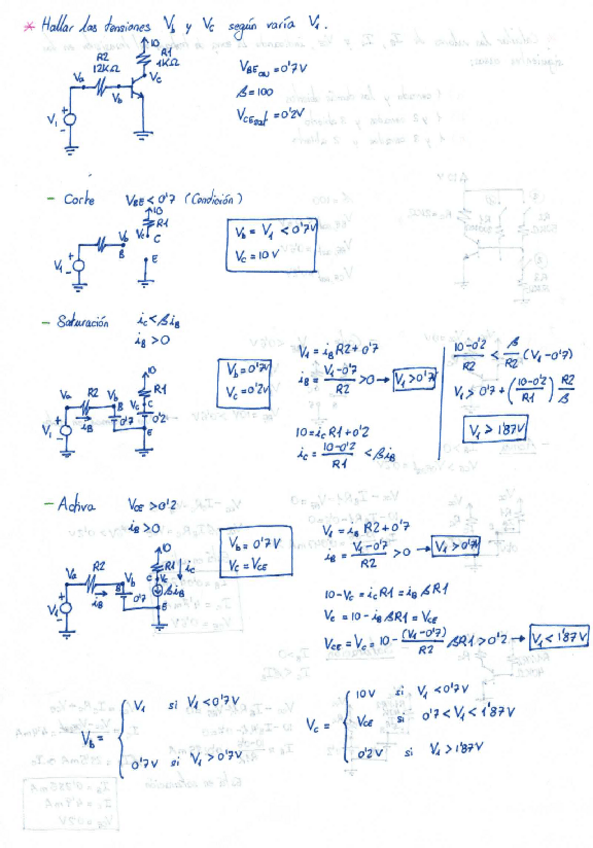 * Hallar las tensiones Vb y Vc según varía V1.
10
R2
12KΩ
R1
1KΩ
Va
Vb
Vc
V1
+
-
VBEon = 0'7V
β = 100
VCEsat = 0'2V
- Corte VBE < 0'7 (Condición)
10
R1
Vb
Vc
C
B
E
V1
+
-
Vb = V1 < 0'7V
Vc = 10V
- Saturación ic < βiB
iB > 0
10
R1
Va
R2
Vb
B
Vc
C
0'2
0'7
iB
E
V1
+
-
Vb = 0'7V
Vc = 0'2V
V1 = iB R2 + 0'7
iB = (V1 - 0'7)/R2 > 0 → V1 > 0'7
10 = ic R1 + 0'2
ic = (10 - 0'2)/R1 < βiB
(10 - 0'2)/R2 < β/R2 (V1 - 0'7)
V1 > 0'7 + ((10 - 0'2)/R1) R2/β
V1 > 1'87V
- Activa VCE > 0'2
iB > 0
10
R1
ic
Va
R2
Vb
B
C
Vc
βiB
0'7
iB
E
V1
+
-
Vb = 0'7V
Vc = VCE
V1 = iB R2 + 0'7
iB = (V1 - 0'7)/R2 > 0 → V1 > 0'7
10 - Vc = ic R1 = iB β R1
Vc = 10 - iB β R1 = VCE
VCE = Vc = 10 - (V1 - 0'7)/R2 β R1 > 0'2 → V1 < 1'87V
Vb =
V1 si V1 < 0'7V
0'7V si V1 > 0'7V
Vc =
10V si V1 < 0'7V
VCE si 0'7 < V1 < 1'87V
0'2V si V1 > 1'87V